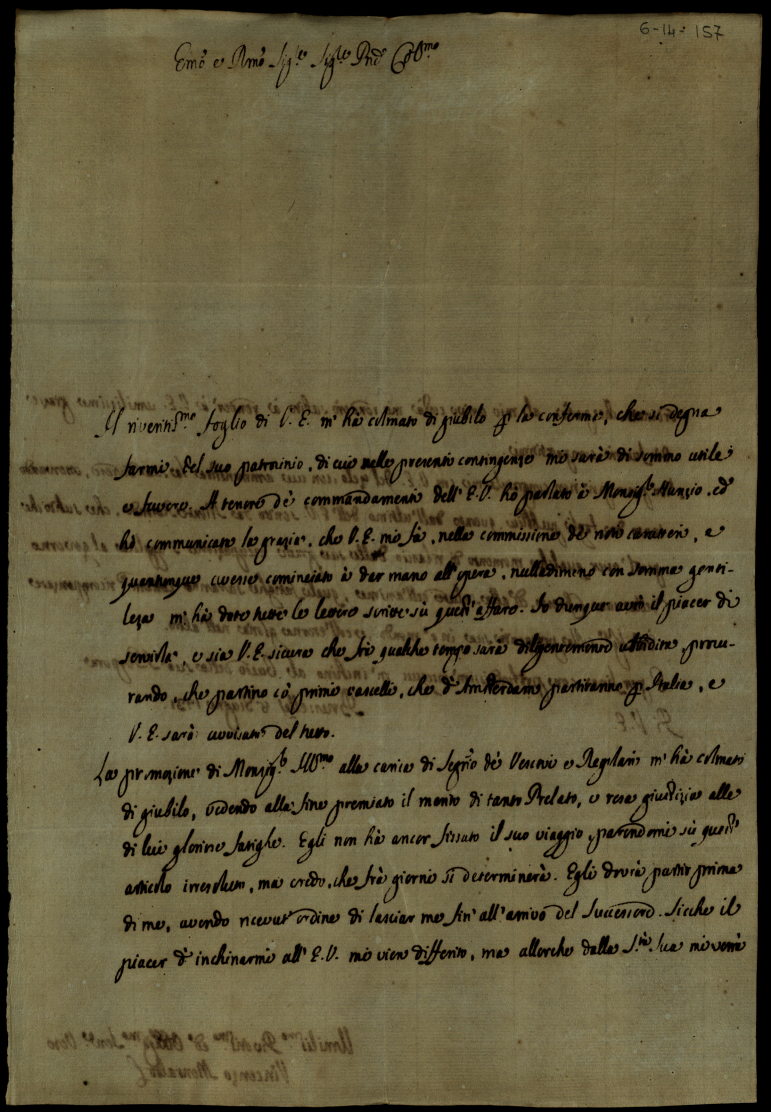 6-14=157
Emo͂ e Rmo͂ Sig.re Sig.re Pnē Col͂mo
Il riveritis.mo foglio di V.E. m'hà colmato di giubilo p la conferma, che si degna
farmi del suo patrocinio, di cui nelle presenti contingenze mi sarà di sommo utile
e favore. A tenore dè commandamenti dell'E.V. hò parlato à Monsig.r Nunzio, ed
hò communicato la grazia, che V.E. mi fà, nella commissione dè noti caratteri, e
quantunque avesse cominciato à dar mano all'opera, nulladimeno con somma genti-
leza m'hà dato tutte le lettere scritte sù quest'affare. Io dunque avrò il piacer di
servirla, e sia V.E. sicura che frà qualche tempo sarà diligentemente ubbidita, procu-
rando, che partino cò primi vascelli, che d'Amsterdam partiranno p Italia, e
V.E. sarà avvisata del tutto.
La promozione di Monsig.r Ill͂mo alla carica di Segrio͂ dè Vescovi e Regolari m'hà colmato
di giubilo, vedendo alla fine premiato il merito di tanto Prelato, e resa giustizia alle
di lui gloriose fatighe. Egli non hà ancor fissato il suo viaggio, parendomi sù quest'
articolo irresoluto, ma credo, che frà giorni si determinerà. Egli dovrà partir prima
di me, avendo ricevut'ordine di lasciar me fin'all'arrivo del Successore. Sicche il
piacer d'inchinarmi all'E.V. mi vien differito, ma allorche dalla S.tà Sua mi verrà